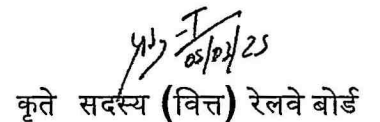 05/03/25
कृते सदस्य (वित्त) रेलवे बोर्ड